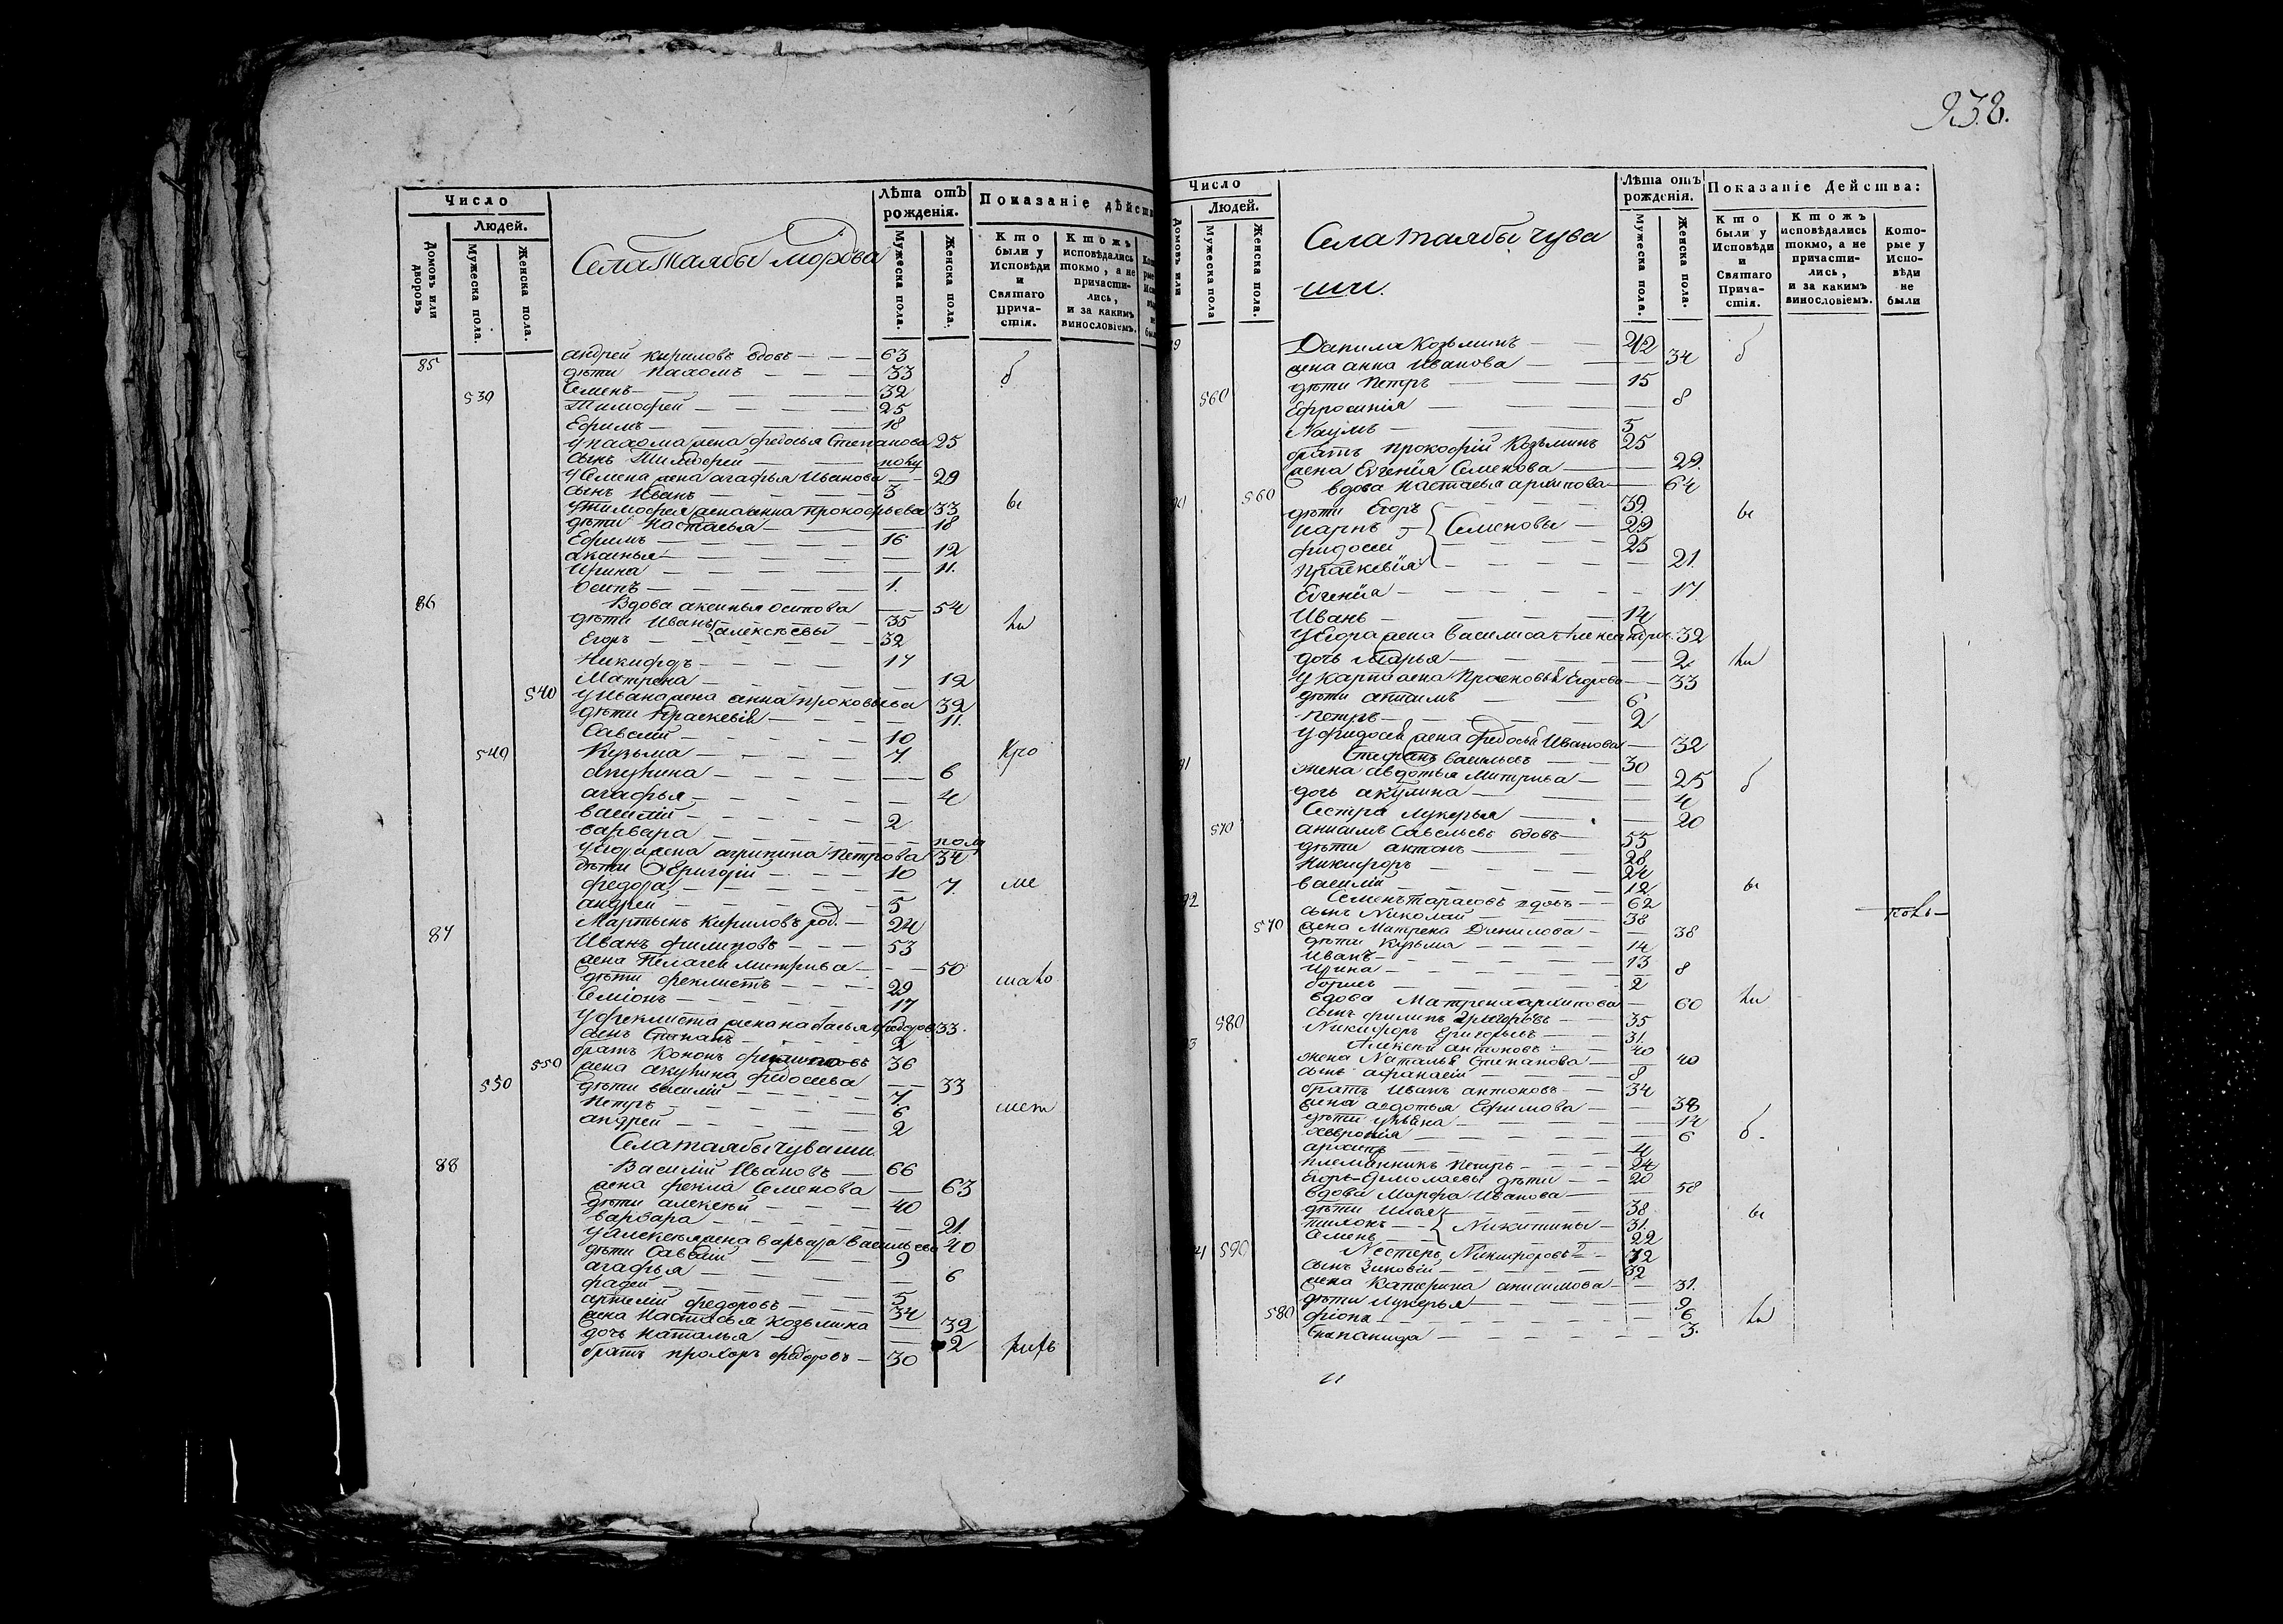 Число
Людей.
Домовъ или дворовъ
Мужеска пола.
Женска пола.
Села Таябы мордва
Лѣта отъ рожденія.
Мужеска пола.
Женска пола.
Показаніе дѣйст
Кто были у Исповѣди и Святаго Прича-стія.
Ктожъ исповѣдались токмо, а не причасти-лись, и за какимъ винословіемъ.
85 андрей кириловъ вдовъ 63
дѣти Пахомъ 33 б
Семенъ 32
539 Тимофей 25
Ефимъ 18
у пахома жена федосья Степанова 25
сынъ Тимофей
у Семена жена агафья Иванова 29
сынъ Иванъ 3
у тимофея жена анна прокофьева 33 ы
дѣти Настасья 18
Ефимъ 16
аксинья 12
Ирина 11.
Осипъ 1.
86 Вдова аксинья осипова 54
дѣти Иванъ алексѣевы 35 ли
Егоръ 32
Никифоръ 17
Матрена 12
540 у Ивана жена анна прокофьева 32
дѣти Праскевія 11.
Савелій 10
540 Кузьма 7. Кро
акулина 6
агафья 4
василій 2
варвара
у Егора жена агрипина Петрова 34
дѣти Григорій 10
федора 7. ме
андрей 5
Мартынъ Кириловъ 24
87 Иванъ филиповъ 53
жена Пелагея митрева 50
дѣти феклистъ 29 мало
Семіонъ 17
у феклиста жена федоров 33.
сынъ Степанъ 2
братъ Кононъ 36
550 жена акулина федосеева 33
550 дѣти василій 7.
Петръ 6 лет
андрей 2
Села таябы чуваши
88 Василій Ивановъ 66
жена фекла Семенова 63
дѣти алексѣй 40
варвара 21.
у алексѣя жена варвара васильева 40
дѣти Савелій 9
агафья 6
фадей 5
артемій федоровъ 34
жена Настасья козьмина 32
дочь наталья 2
братъ прохоръ федоровъ 30
938.
Число
Людей.
Домовъ или
Мужеска пола
Женска пола.
Села таябы чува
ши.
Лѣта отъ рожденія.
Мужеска пола.
Женска пола.
Показаніе Действа:
Кто были у Исповѣди и Святаго Прича-стія.
Ктожъ исповѣдались токмо, а не причасти-лись, и за какимъ винословіемъ.
Кото-рые у Испо-вѣди не были
Данила Козьминъ 42 б
жена анна Иванова 34
дѣти Петръ 15
560 Ефросинія 8
Наумъ 5
братъ прокофій Козьминъ 25
жена Евгенія Семенова 29.
560 вдова настасья архипова 64
дѣти Егоръ 39. ы
карпъ Семеновы 29
фидосей 25
Праскевія 21.
Евгенія 17
Иванъ 14
у Егора жена василиса Александро 32
дочь Марья 2 ли
у карпа жена Прасковья Егорова 33
дѣти 6
Петръ 2
у фидосея жена федосья Иванова 32
Стефанъ васильевъ 30
жена авдотья митрива 25 б
дочь акулина 4
Сестра лукерья 20
570 анисимъ Савельевъ вдовъ 55
дѣти антонъ 28
Никифоръ 24
василій 12 ы
92 Семенъ тарасовъ вдовъ 62
сынъ Николай 38
570 жена Матрена Данилова 38
дѣти Кузьма 14
Иванъ 13
Ирина 8
борисъ 2
вдова Матрена архипова 60 ли
580 сынъ филипъ Григорьевъ 35
Никифоръ Григорьевъ 31.
Алексѣй антоновъ 40
жена Наталья Степанова 40
сынъ афанасій 8
братъ Иванъ антоновъ 34
жена авдотья Ефимова 38
дѣти 14
6 б.
архипъ 4
племянникъ Петръ 24
Егоръ Ермолаевы дѣти 20
вдова Марфа Иванова 58
дѣти Илья 38 ы
тихонъ Никитины 31.
Семенъ 22
590 Нестеръ Никифоровъ 72
сынъ Зиновій 32
жена Катерина анисимова 31.
дѣти лукерья 9
580 6 ли
Степанида 3.